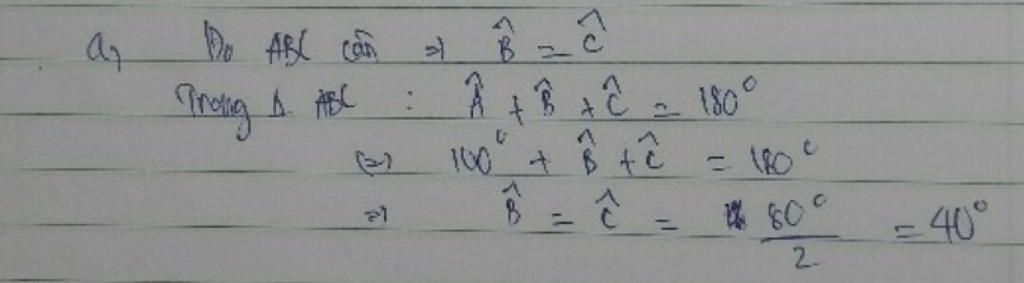 a, Do ABC cân => B̂ = Ĉ
Trong Δ ABC : Â + B̂ + Ĉ = 180°
(=) 100° + B̂ + Ĉ = 180°
=> B̂ = Ĉ = 80°/2 = 40°